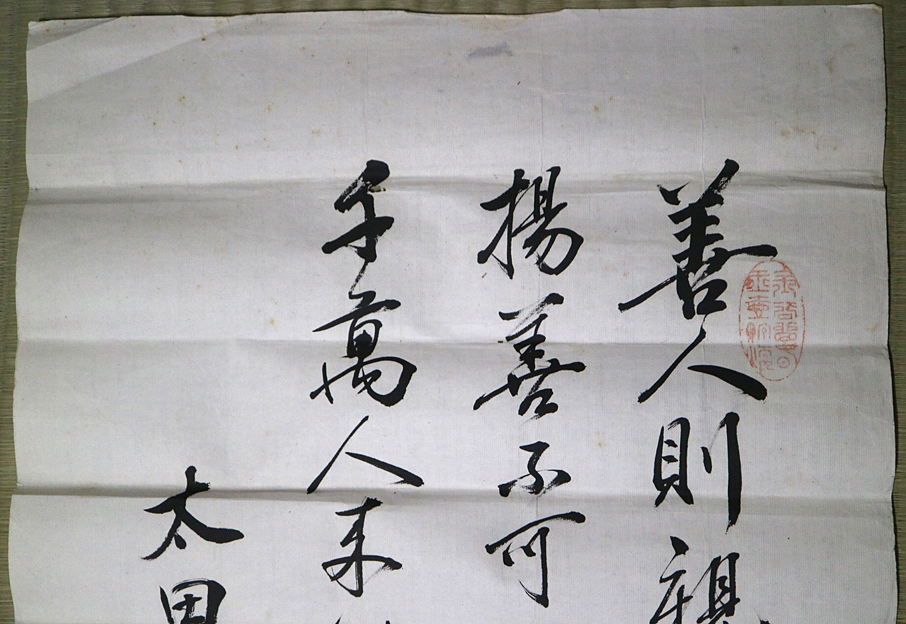 善人則親
揚善不可
千萬人来
太田